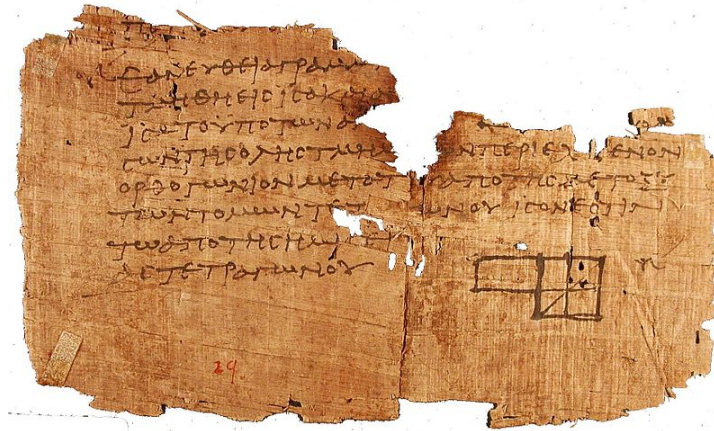 ΕΑΝΕΥΘΕΙΑΓΡΑΜΜ
ΤΜΗΘΗΕΙΣΙΣΑΚΑΙΑ
ΙΣΑΤΟΥΠΟΤΩΝΑ
ΣΩΝΤΗΣΟΛΗΣΤΜΗΜ ΩΝΠΕΡΙΕΧ ΜΕΝΟΝ
ΟΡΘΟΓΩΝΙΟΝΜΕΤΑΤ ΥΑΠΟΤΗΣΜΕΤΟΞΥ
ΤΩΝΤΟΜΩΝΤΕΤ ΩΝΟΥΙΣΟΝΕΣΤΙΝ
ΤΩΑΠΟΤΗΣΗΜΙΣ
ΑΣΤΕΤΡΑΓΩΝΟΥ
29